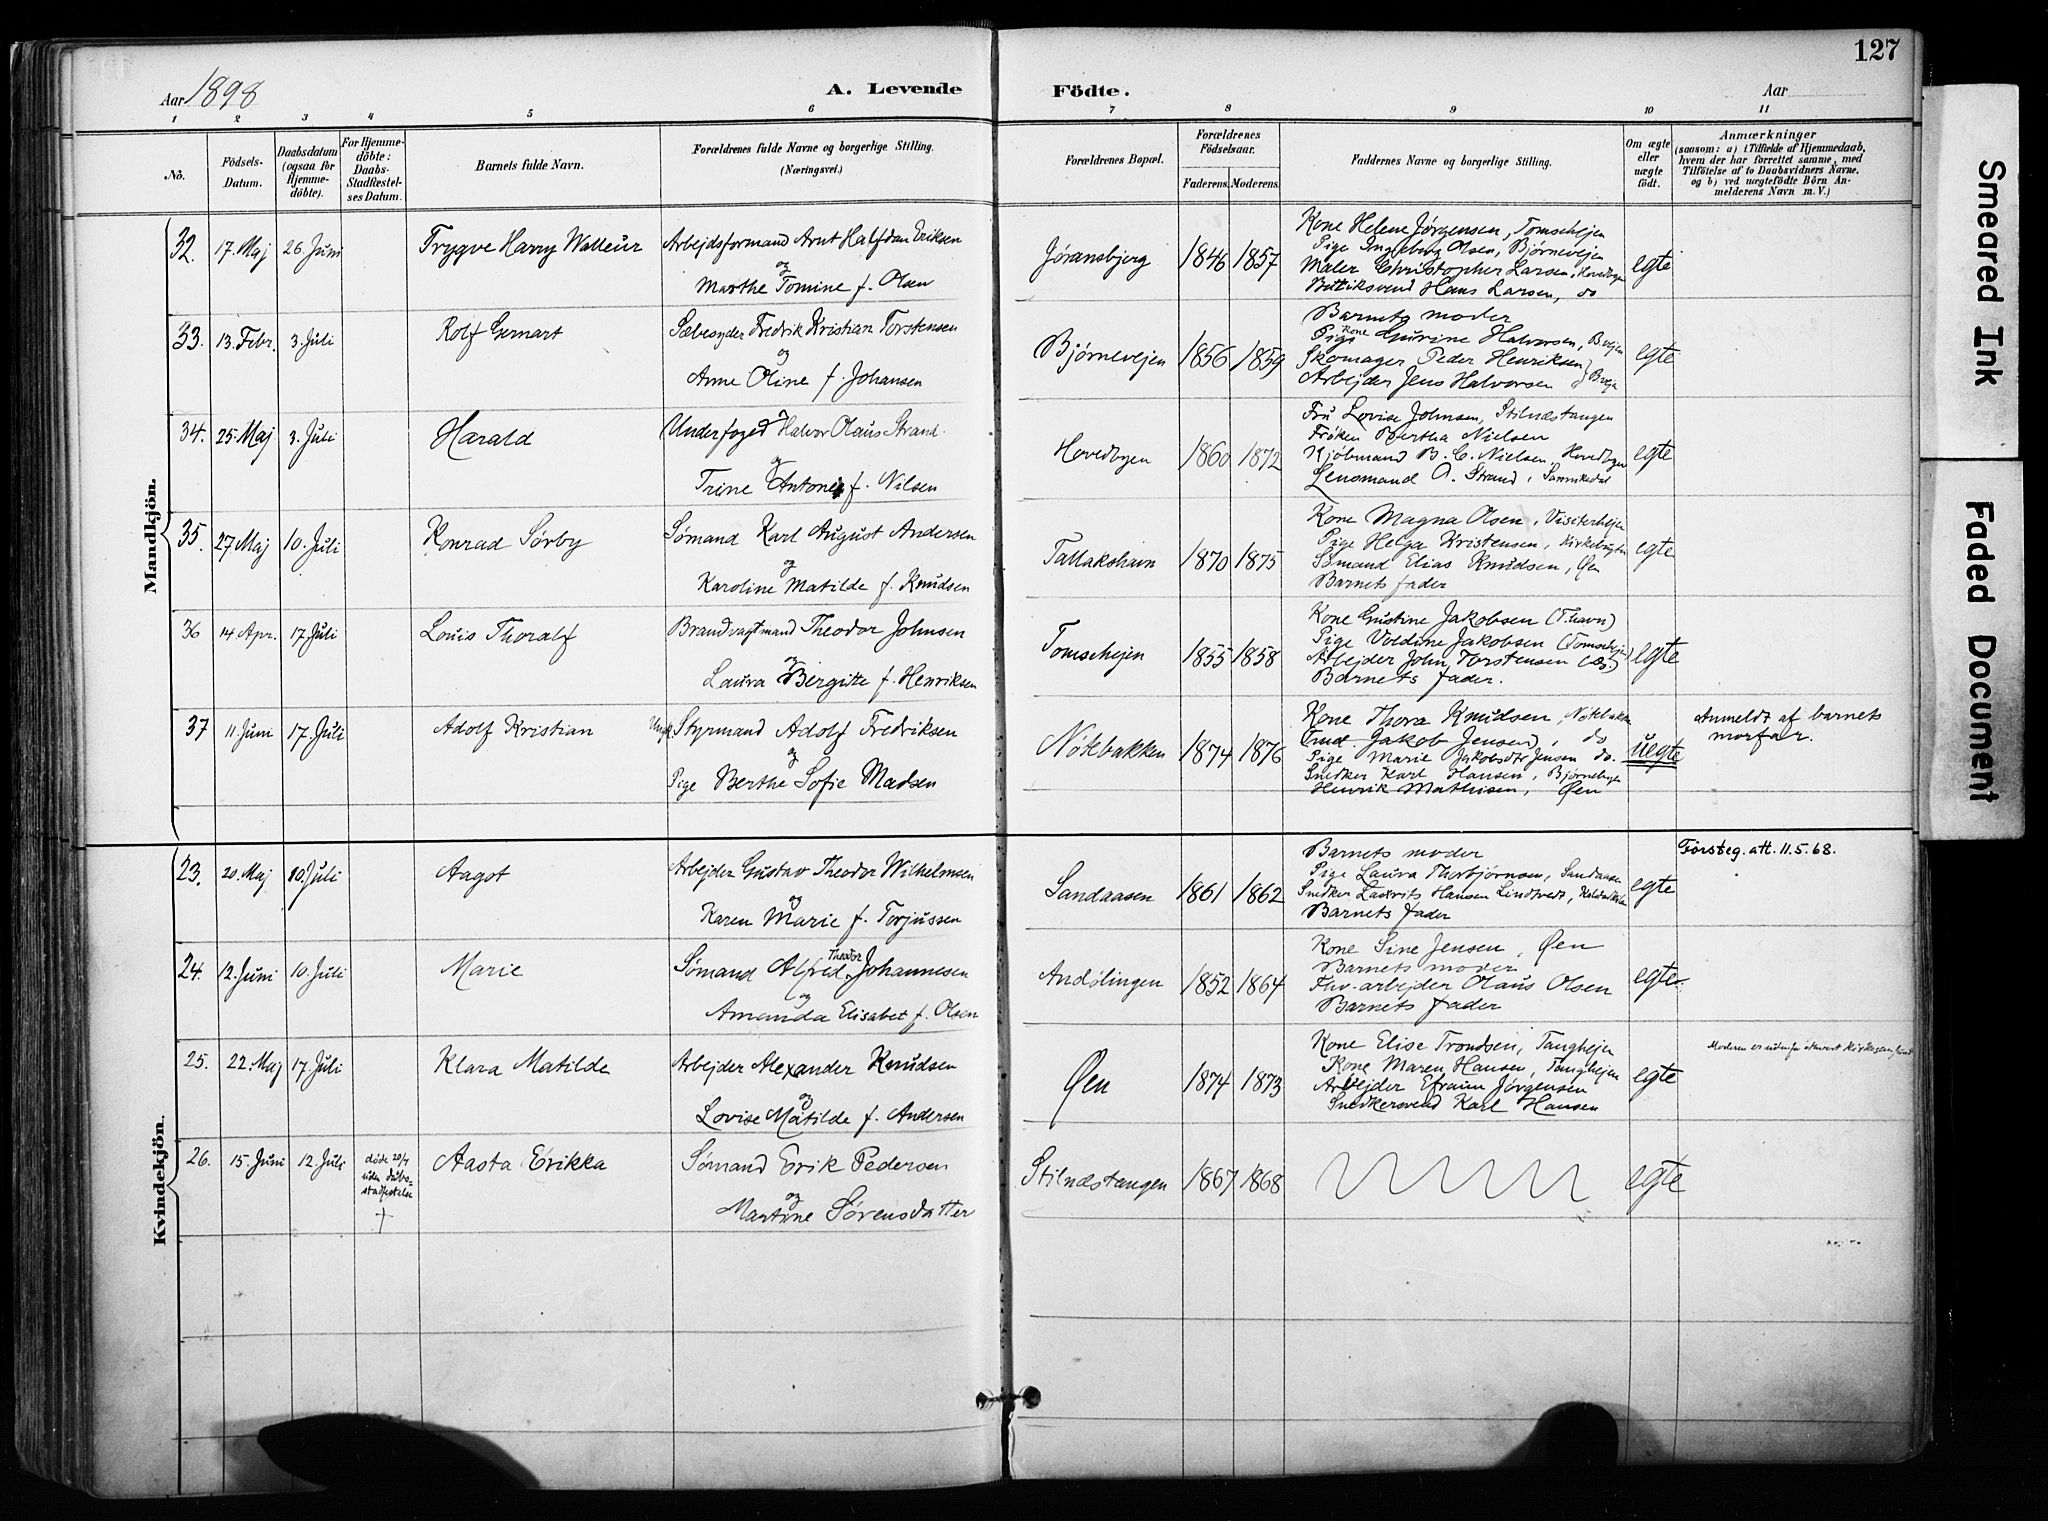 127
Aar 1898
A. Levende Födte.
Aar
1 2 3 4 5 6 7 8 9 10 11
No.
Födsels-Datum.
Daabsdatum (ogsaa for Hjemme-döbte).
For Hjemme-döbte: Daabs-Stadfæstel-ses Datum.
Barnets fulde Navn.
Forældrenes fulde Navne og borgerlige Stilling. (Næringsvei.)
Forældrenes Bopæl.
Forældrenes Födselsaar.
Faderens. Moderens.
Faddernes Navne og borgerlige Stilling.
Om ægte eller uægte födt.
Anmærkninger
(saasom: a) i Tilfælde af Hjemmedaab, hvem der har forrettet samme, med Tilföielse af to Daabsvidners Navne, og b) ved uægtefödte Börn An-melderens Navn m. V.)
Mandkjön.
32. 17. Maj 26. Juni Trygve Harry Walleur Arbejdsformand Arnt Halfdan Eriksen
og
Marthe Tomine f. Olsen
Jøransbjerg 1846 1857
Kone Helene Jørgensen, Tomschejen
Pige Ingeborg Olsen, Bjørnevejen
Maler Christopher Larsen, Hovedbyen
Butiksvend Hans Larsen, do
egte
33. 13. Febr. 3. Juli Rolf Gernart Sæbesyder Fredrik Kristian Torstensen
og
Anne Oline f. Johansen
Bjørnevejen 1856 1859
Barnets moder
Kone Gurine Halvorsen, B.vejen
Skomager Peder Henriksen
Arbejder Jens Halvorsen
egte
34. 25. Maj 3. Juli Harald Underfoged Halvor Olaus Strand.
og
Trine Antonie f. Nilsen
Hovedbyen 1860 1872
Fru Lovise Johnsen, Stilnæstangen
Frøken Bertha Nielsen
Kjøbmand B. C. Nielsen, Hovedbyen
Lensmand O. Strand, Sannikedal
egte
35. 27 Maj 10. Juli Konrad Sørby Sømand Karl August Andersen
og
Karoline Matilde f. Knudsen
Tallakshavn 1870 1875
Kone Magna Olsen, Visiterhejen
Pige Helga Kristensen, Kirkebugten
Sømand Elias Knudsen, Øen
Barnets fader
egte
36 14 Apr. 17. Juli Louis Thoralf Brandvagtmand Theodor Johnsen
og
Laura Bergitte f. Henriksen
Tomschejen 1855 1858
Kone Gustine Jakobsen (T.havn)
Pige Voldine Jakobsen (Tomschejen)
Arbejder John Torstensen
Barnets fader.
egte
37 11. Juni 17. Juli Adolf Kristian Ungk Styrmand Adolf Fredriksen
og
Pige Berthe Sofie Madsen
Nøtebakken 1874 1876
Kone Thora Knudsen, Nøtebakken
Jakob Jensen, do
Pige Marie Jakobsdtr Jensen do.
Snedker Karl Hansen, Bjørnebyen
Henrik Mathisen, Øen
uegte
Anmeldt af barnets
morfar.
Kvindekjön.
23. 20. Maj 10. Juli Aagot Arbejder Gustav Theodor Wilhelmsen
og
Karen Marie f. Torjussen
Sandaasen 1861 1862
Barnets moder
Pige Laura Thorbjørnsen, Sandaasen
Snedker Lauvits Hansen Lindtvedt,
Barnets fader
egte
Försteg. att. 11.5.68.
24. 12. Juni 10. Juli Marie Sømand Alfred Theodor Johannesen
og
Amanda Elisabet f. Olsen
Andølingen 1852 1864
Kone Sine Jensen, Øen
Barnets moder
Fhv. arbejder Olaus Olsen
Barnets fader
egte
25. 22. Maj 17. Juli Klara Matilde Arbejder Alexander Knudsen
og
Lovise Matilde f. Andersen
Øen 1874 1873
Kone Elise Trondsen, Tanghejen
Kone Maren Hansen, Tanghejen
Arbejder Efraim Jørgensen
Snedkersvend Karl Hansen
egte
Moderen er udenfor
26. 15. Juni 12. Juli døde 20/7
uden daabs-
stadfæstelse
†
Aasta Erikka Sømand Erik Pedersen
og
Martine Sørensdatter
Stilnæstangen 1867 1868
egte
Smeared Ink
Faded Document